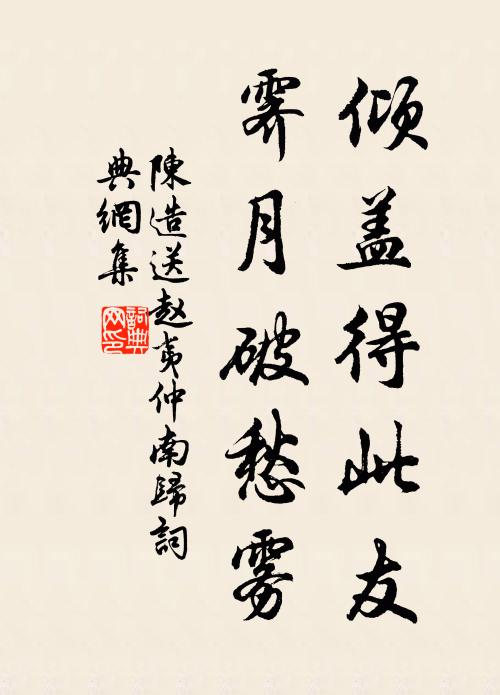 倾盖得此友
霁月破愁雾
陳造送赵夷仲南歸詞
典網集
詞典
网印